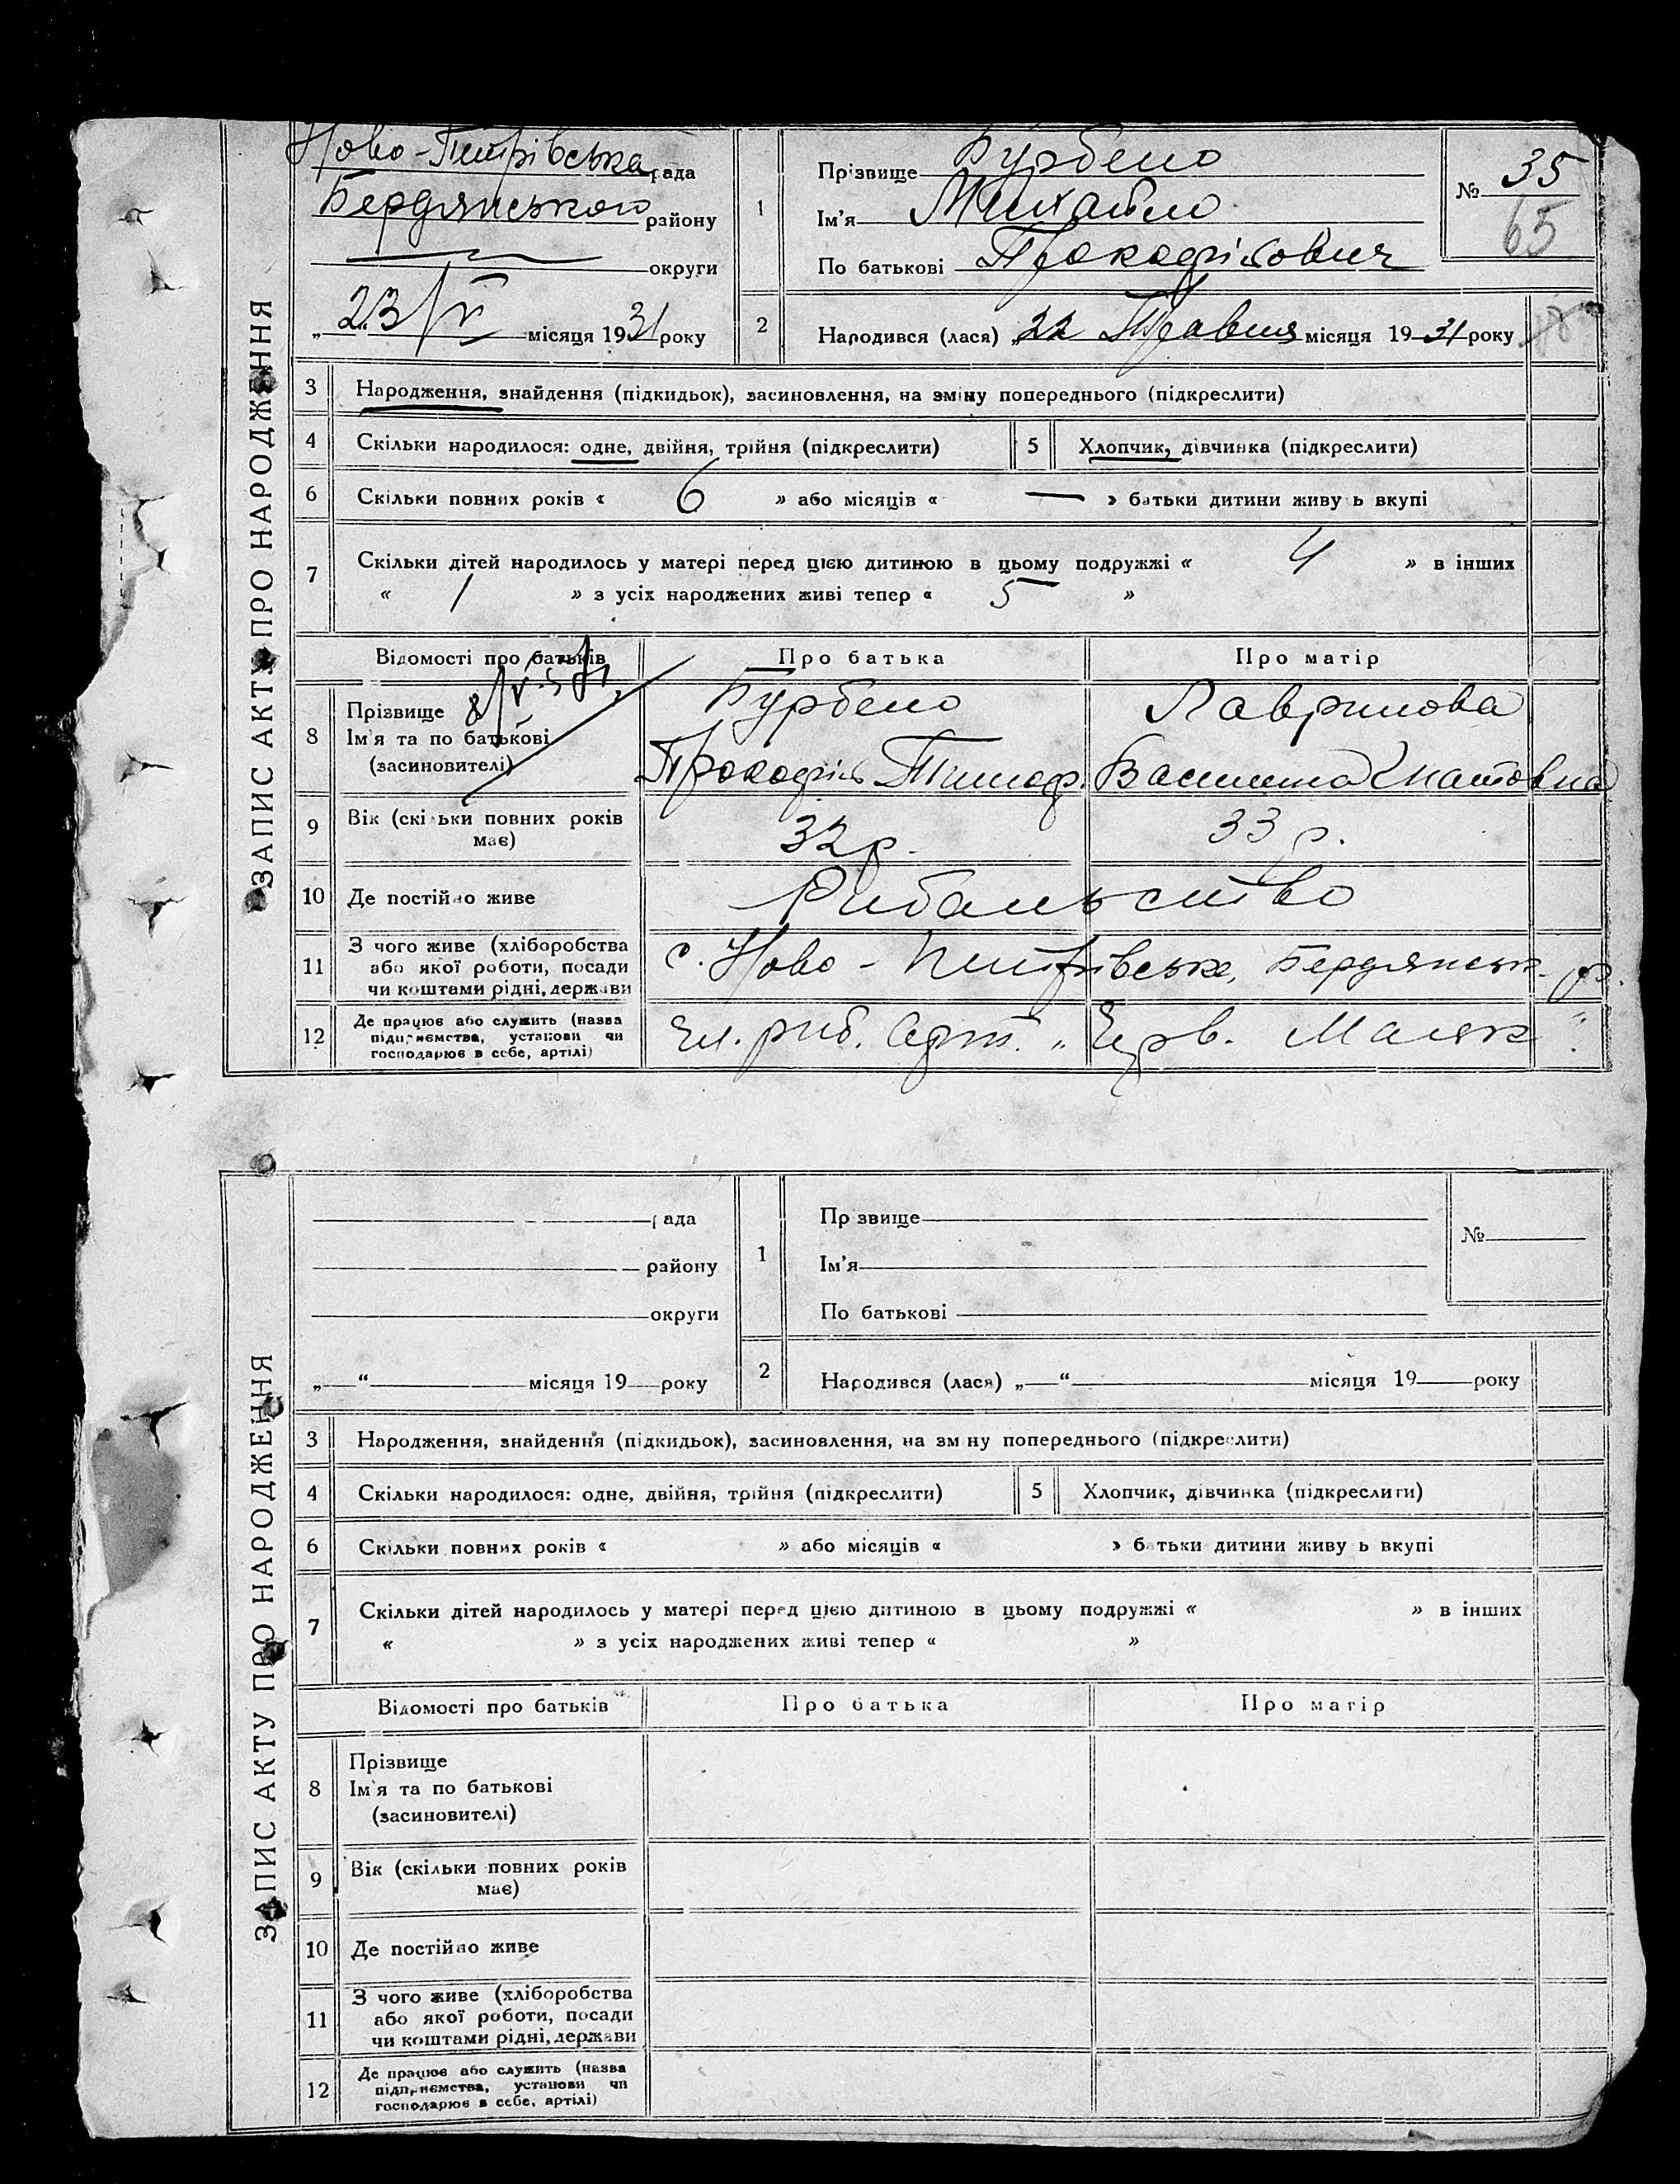 ЗАПИС АКТУ ПРО НАРОДЖЕННЯ
Ново-Петрівська рада
Бердянського району
— округи
„23/V місяця 1931 року
1
Прізвище Курбело
Ім'я Михайло
По батькові Прокофійович
№ 35
65
2
Народився (лася) „22 Травня місяця 1931 року
3 Народження, знайдення (підкидьок), засиновлення, на зміну попереднього (підкреслити)
4 Скільки народилося: одне, двійня, трійня (підкреслити) 5 Хлопчик, дівчинка (підкреслити)
6 Скільки повних років « 6 » або місяців « — » батьки дитини живу ь вкупі
7 Скільки дітей народилось у матері перед цією дитиною в цьому подружжі « 4 » в інших
« 1 » з усіх народжених живі тепер « 5 »
Відомості про батьків Про батька Про матір
8 Прізвище Курбело
Ім'я та по батькові
(засиновителі) Прокофій Тимоф.
9 Вік (скільки повних років має) 32 р. 33 р.
10 Де постійно живе Рибальство
11 З чого живе (хліборобства
або якої роботи, посади
чи коштами рідні, держави с. Ново-Петрівське, Бердянськ. р.
12 Де працює або служить (назва
підприємства, установи чи
господарює в себе, артілі) Чл. риб. Арт. „Черв. Маяк"
ЗАПИС АКТУ ПРО НАРОДЖЕННЯ
рада
району
округи
„ “ місяця 19 року
1
Пр звище
Ім'я
По батькові
№
2
Народився (лася) „ “ місяця 19 року
3 Народження, знайдення (підкидьок), засиновлення, на зм ну попереднього (підкреслити)
4 Скільки народилося: одне, двійня, трійня (підкреслити) 5 Хлопчик, дівчинка (підкреслити)
6 Скільки повних років « » або місяців « » батьки дитини живу ь вкупі
7 Скільки дітей народилось у матері перед цією дитиною в цьому подружжі « » в інших
« » з усіх народжених живі тепер « »
Відомості про батьків Про батька Про матір
8 Прізвище
Ім'я та по батькові
(засиновителі)
9 Вік (скільки повних років
має)
10 Де постійно живе
11 З чого живе (хліборобства
або якої роботи, посади
чи коштами рідні, держави
12 Де працює або служить (назва
підприємства, установи чи
господарює в себе, артілі)